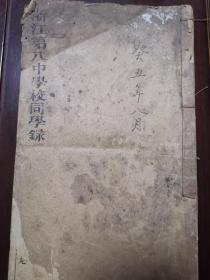 浙江第八中學校同學錄
癸丑年八月